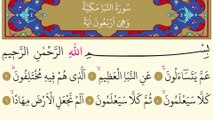 سُورَةُ النَّبَأِ مَكِّيَّةٌ
وَهِيَ اَرْبَعُونَ اٰيَةً
بِسْمِ اللّٰهِ الرَّحْمٰنِ الرَّحِيمِ
عَمَّ يَتَسَٓاءَلُونَۚ عَنِ النَّبَاِ الْعَظِيمِۙ اَلَّذِي هُمْ فِيهِ مُخْتَلِفُونَۜ
كَلَّا سَيَعْلَمُونَۙ ثُمَّ كَلَّا سَيَعْلَمُونَ اَلَمْ نَجْعَلِ الْاَرْضَ مِهَادًاۙ